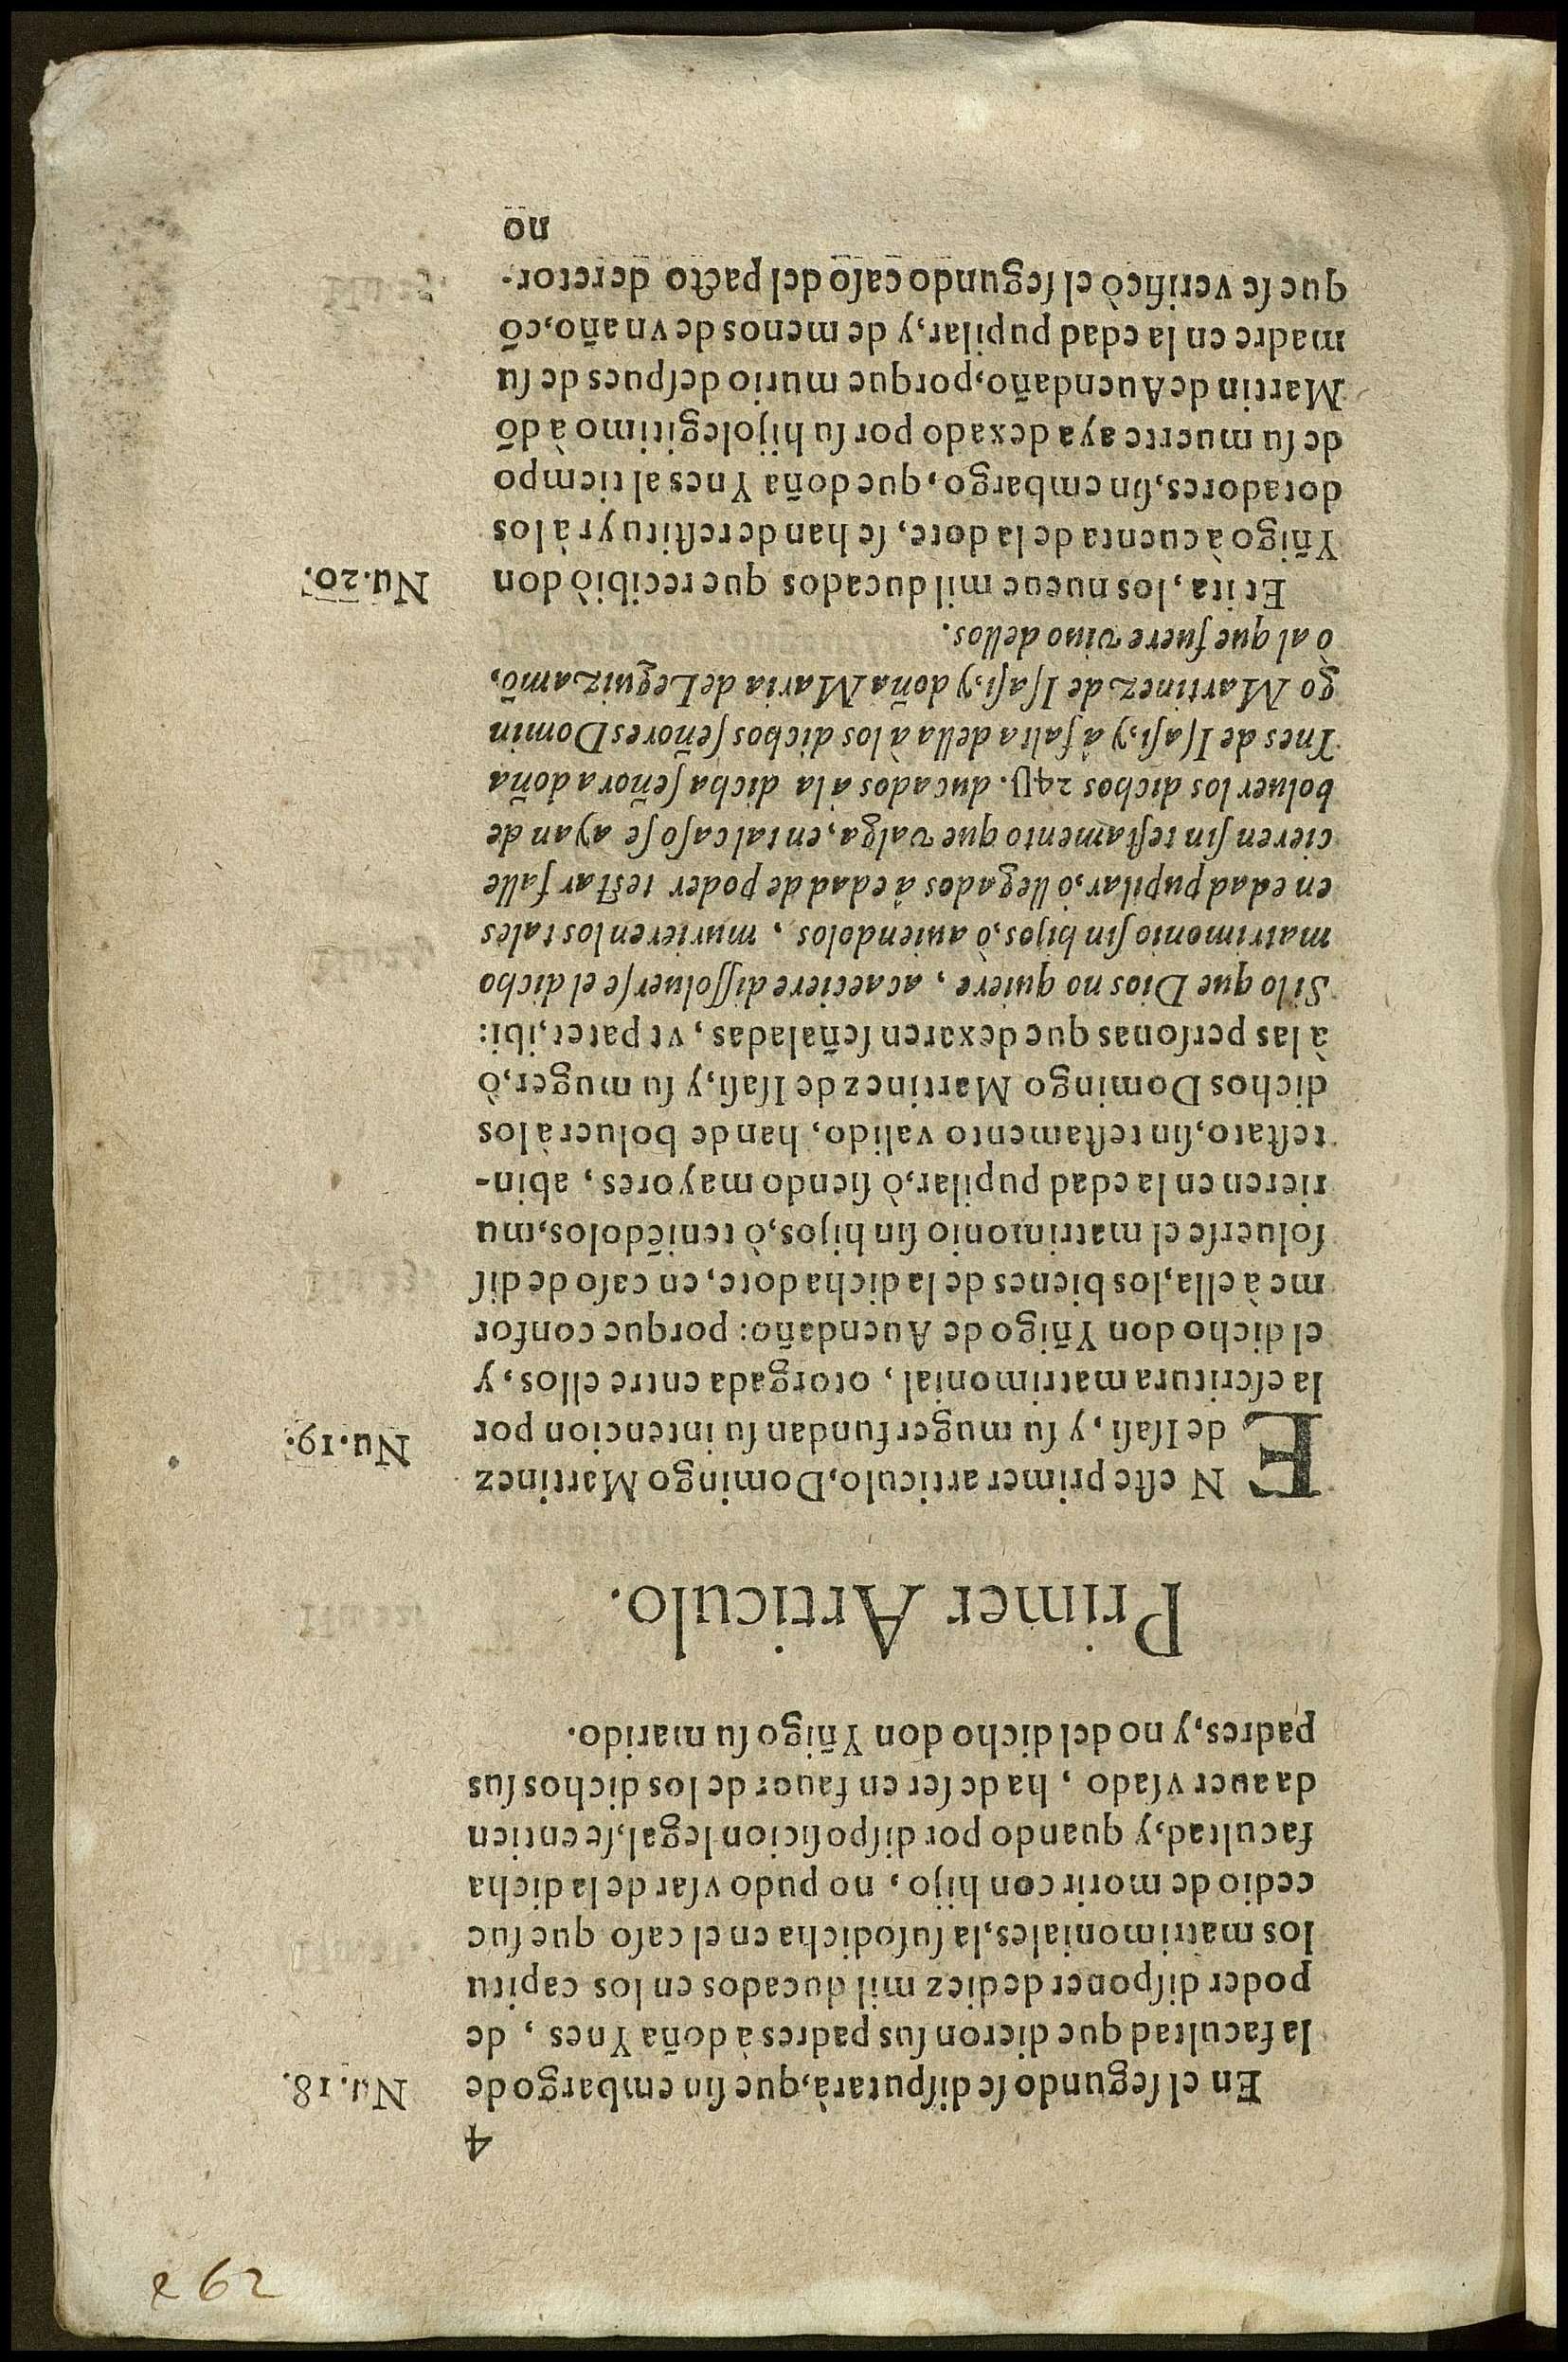 262
4
En el ſegundo ſe diſputarà, que ſin embargo de
Nu.18.
la facultad que dieron ſus padres à doña Ynes, de
poder diſponer de diez mil ducados en los capitu
los matrimoniales, la ſuſodicha en el caſo que ſuc
cedio de morir con hijo, no pudo vſar de la dicha
facultad, y quando por diſpoſicion legal, ſe entien
da auer vſado, ha de ſer en fauor de los dichos ſus
padres, y no del dicho don Yñigo ſu marido.
Primer Articulo.
EN eſte primer articulo, Domingo Martinez
de Iſaſi, y ſu muger fundan ſu intencion por
Nu.19.
la eſcritura matrimonial, otorgada entre ellos, y
el dicho don Yñigo de Auendaño: porque confor
me à ella, los bienes de la dicha dote, en caſo de diſ
ſoluerſe el matrimonio ſin hijos, ò teniẽdolos, mu
rieren en la edad pupilar, ò ſiendo mayores, abin-
teſtato, ſin teſtamento valido, han de boluer à los
dichos Domingo Martinez de Iſaſi, y ſu muger, ò
à las perſonas que dexaren ſeñaladas, vt patet, ibi:
Si lo que Dios no quiere, acaeciere diſſoluerſe el dicho
matrimonio ſin hijos, ò auiendolos, murieren los tales
en edad pupilar, ò llegados à edad de poder teſtar falle
cieren ſin teſtamento que valga, en tal caſo ſe ayan de
boluer los dichos 24U. ducados à la dicha ſeñora doña
Ynes de Iſaſi, y à falta della à los dichos ſeñores Domin
go Martinez de Iſaſi, y doña Maria de Leguizamõ,
ò al que fuere viuo dellos.
Et ita, los nueue mil ducados que recibiò don
Nu.20.
Yñigo à cuenta de la dote, ſe han de reſtituyr à los
dotadores, ſin embargo, que doña Ynes al tiempo
de ſu muerte aya dexado por ſu hijo legitimo à dõ
Martin de Auendaño, porque murio deſpues de ſu
madre en la edad pupilar, y de menos de vn año, cõ
que ſe verificò el ſegundo caſo del pacto de retor-
no